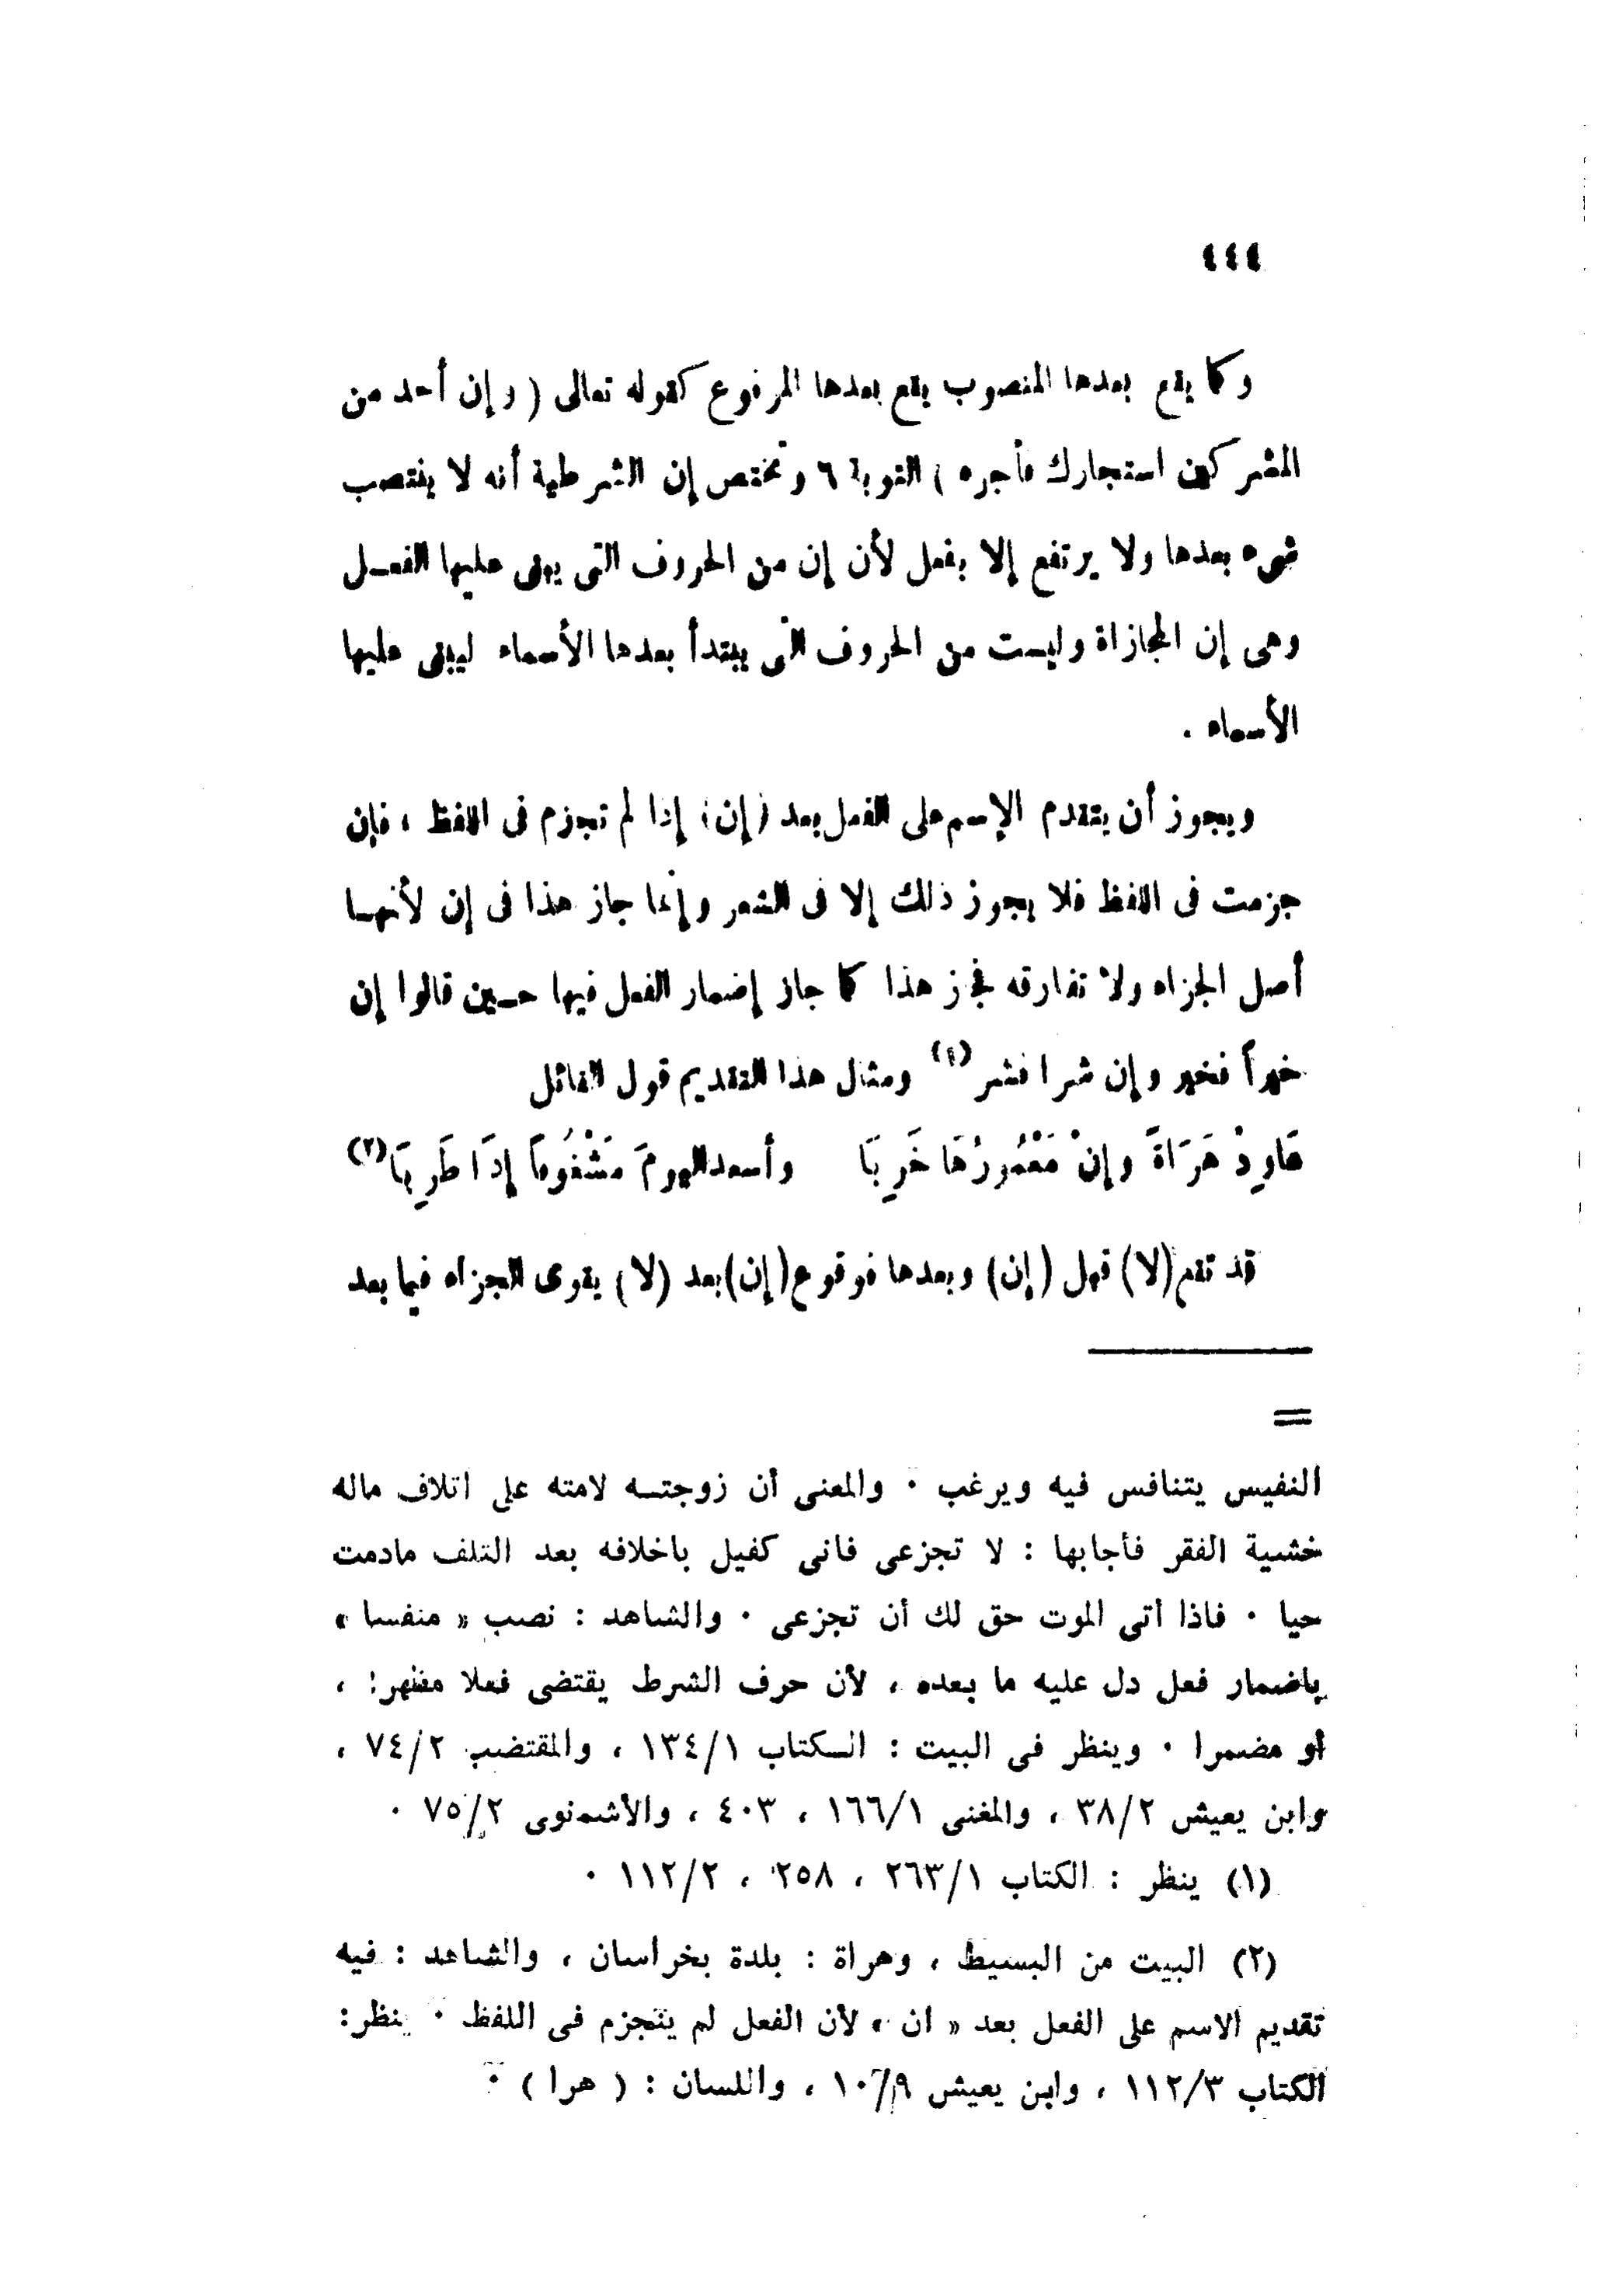 ٤٤٤
وكما يقع بعدها المنصوب يقع بعدها المرفوع كقوله تعالى ( وإن أحد من
المشركين استجارك فأجره ) التوبة ٦ وتختص إن الشرطية أنه لا ينتصب
شىء بعدها ولا يرتفع إلا بفعل لأن إن من الحروف التى يبنى عليها الفعـل
وهى إن المجازاة وليست من الحروف التى يبتدأ بعدها الأسماء ليبنى عليها
الأسماء .
ويجوز أن يتقدم الإسم على الفعل بعد (إن) إذا لم تجزم فى اللفظ ، فإن
جزمت فى اللفظ فلا يجوز ذلك إلا فى الشعر وإنما جاز هذا فى إن لأنهـا
أصل الجزاء ولا تفارقه فجز هذا كما جاز إضمار الفعل فيها حـين قالوا إن
خيراً فخير وإن شرا فشر (١) ومثال هذا التقديم قول القائل
عَاوِدْ هَرَاةَ وإنْ مَعْمُورُهَا خَرِبَا وأسعد اليومَ مَشْغُوفاً إِذَا طَرِبَا (٢)
قد تقع (لا) قبل (إن) وبعدها فوقوع (إن) بعد (لا) يقوى الجزاء فيما بعد
=
النفيس يتنافس فيه ويرغب ٠ والمعنى أن زوجتـه لامته على اتلاف ماله
خشية الفقر فأجابها : لا تجزعى فانى كفيل باخلافه بعد التلف مادمت
حيا ٠ فاذا أتى الموت حق لك أن تجزعى ٠ والشاهد : نصب « منفسا »
باضمار فعل دل عليه ما بعده ، لأن حرف الشرط يقتضى فعلا مظهرا ،
أو مضمرا ٠ وينظر فى البيت : الـكتاب ١٣٤/١ ، والمقتضب ٧٤/٢ ،
وابن يعيش ٣٨/٢ ، والمغنى ١٦٦/١ ، ٤٠٣ ، والأشمونى ٧٥/٢ ٠
(١) ينظر : الكتاب ٢٦٣/١ ، ٢٥٨ ، ١١٢/٢ ٠
(٢) البيت من البسيط ، وهراة : بلدة بخراسان ، والشاهد : فيه
تقديم الاسم على الفعل بعد « ان » لأن الفعل لم ينجزم فى اللفظ ٠ ينظر:
الكتاب ١١٢/٣ ، وابن يعيش ١٠/٩ ، واللسان : ( هرا ) ٠